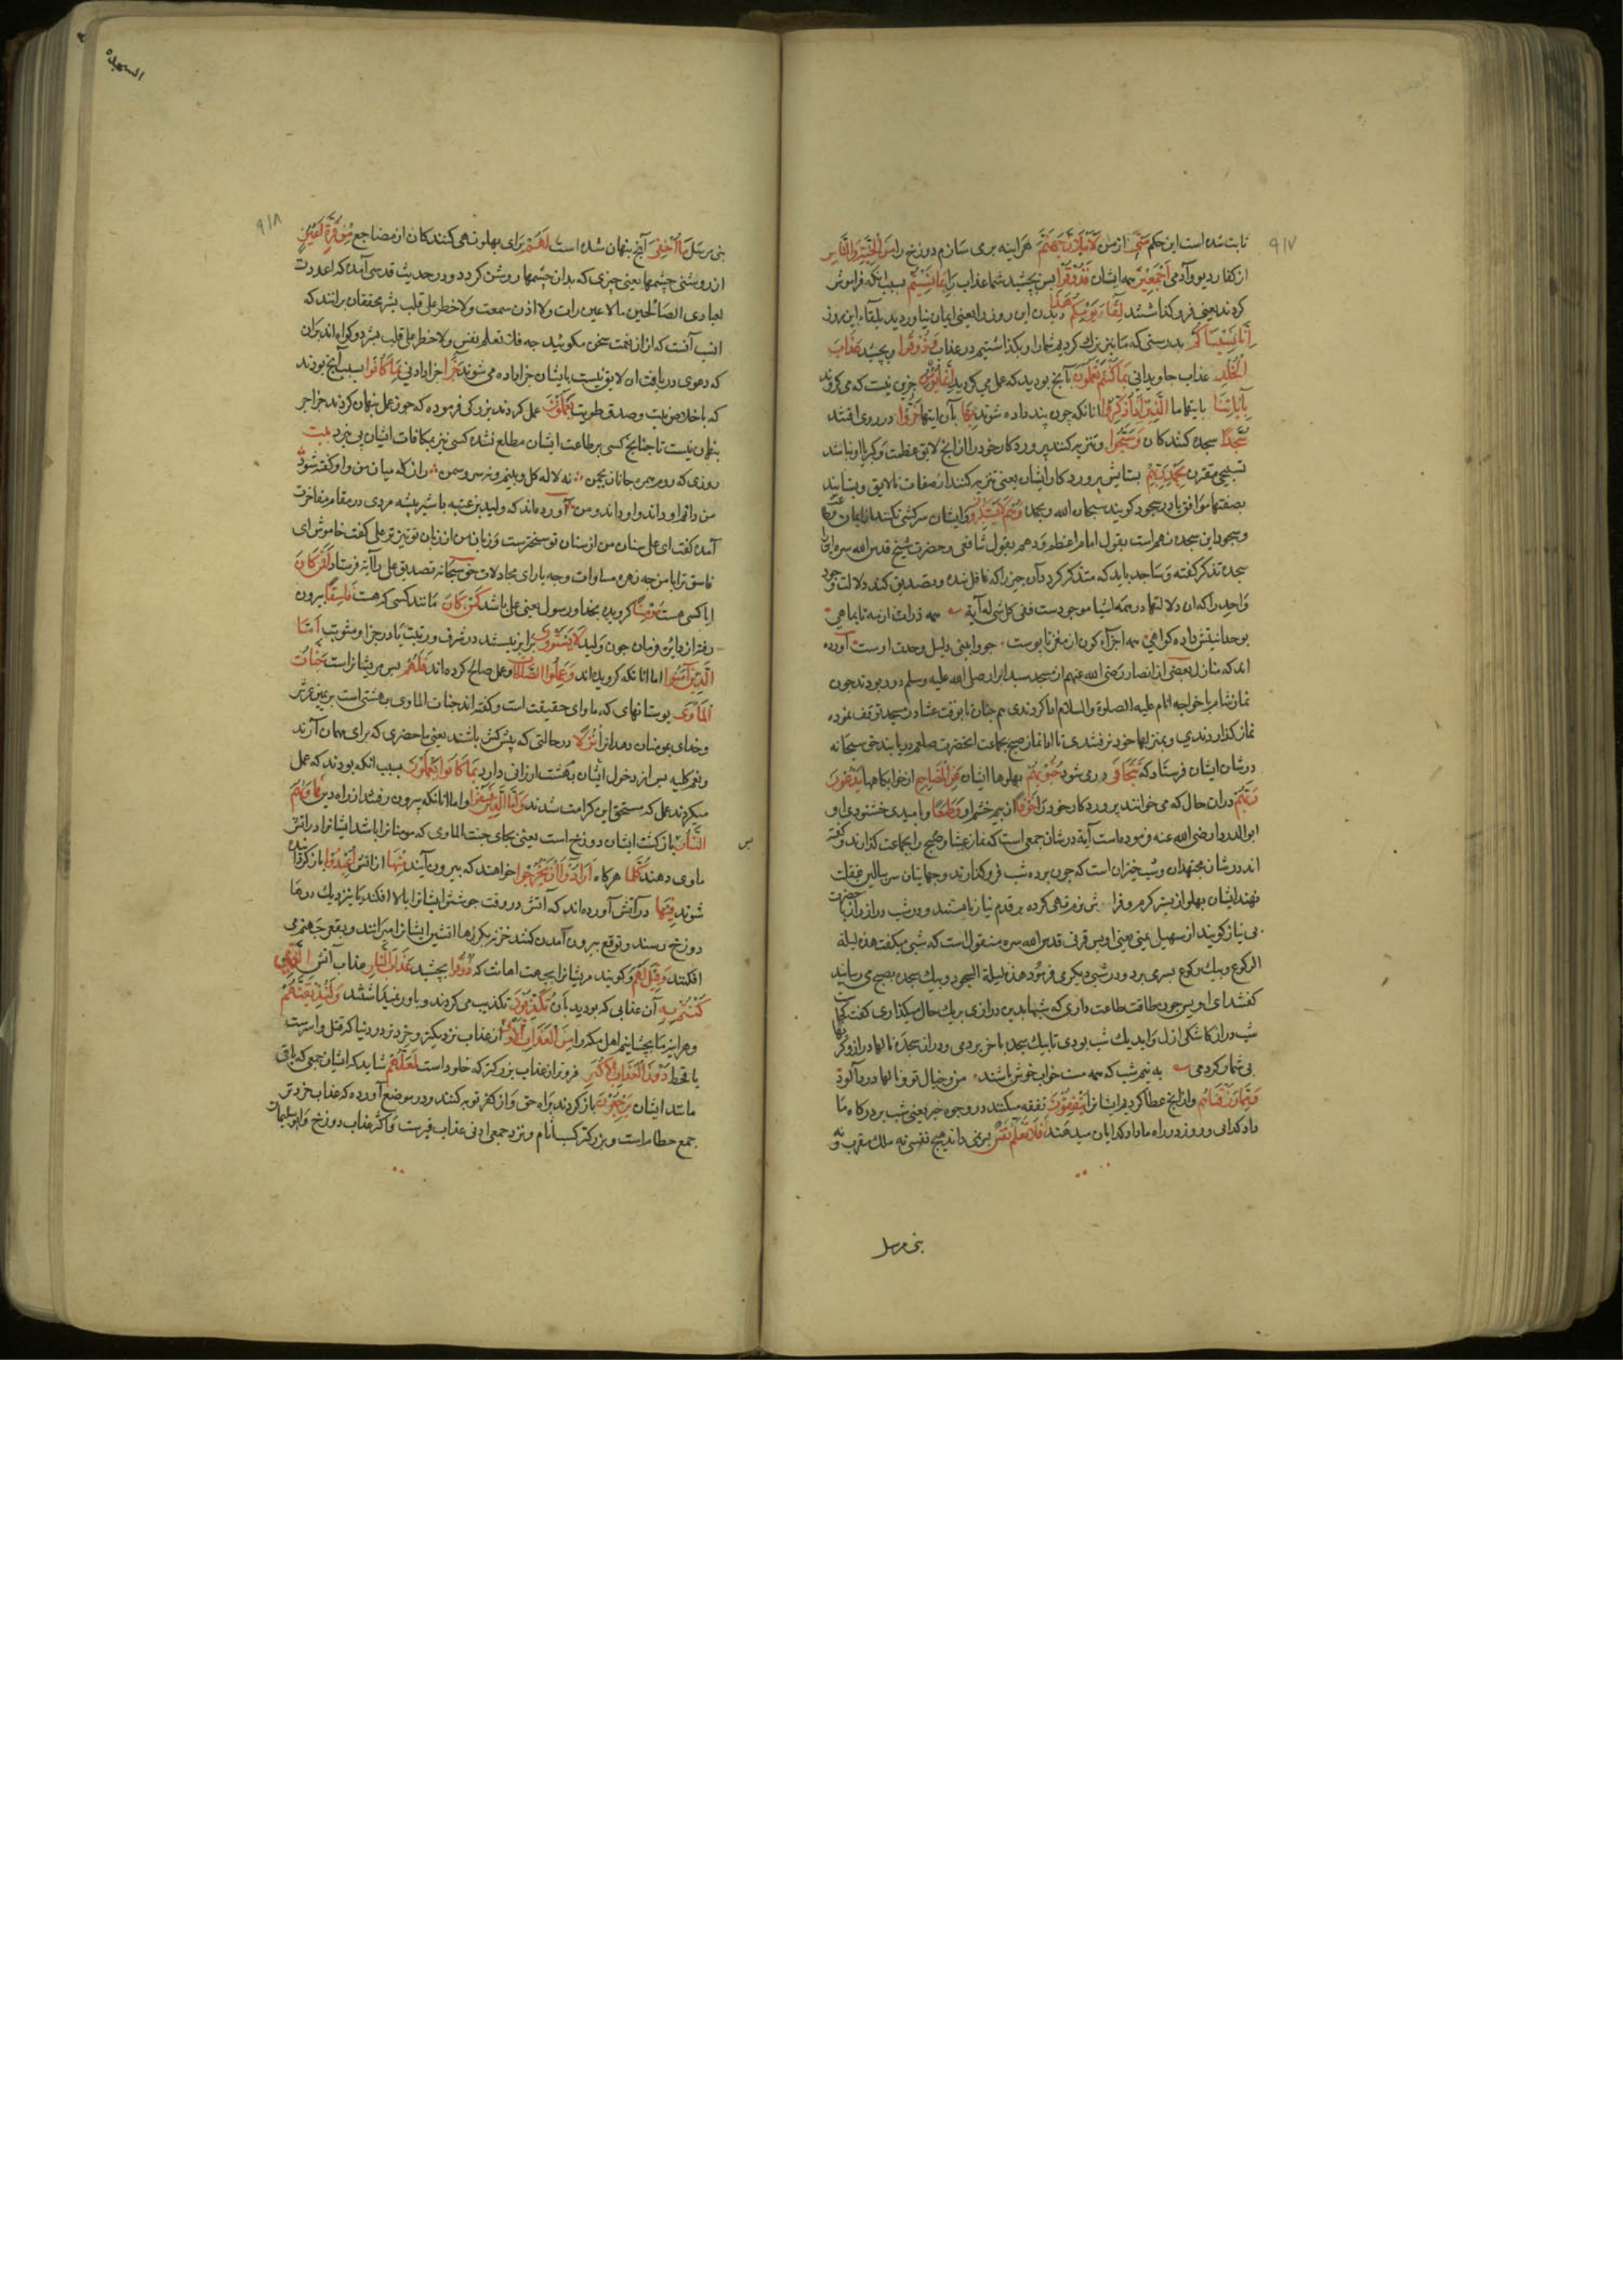 ثابت شده است این حکم مِنِّی از من لَأَمْلَأَنَّ جَهَنَّمَ هر اینه پر می سازم دوزخ را مِنَ الْجِنَّةِ وَالنَّاسِ
از کفار دیو و آدمی أَجْمَعِینَ همه ایشان فَذُوقُوا پس بچشید شما عذاب را بِمَا نَسِیتُمْ بسبب انکه فراموش
کردند یعنی فرو کذاشتند لِقَاءَ یَوْمِکُمْ هَذَا دیدن این روز را یعنی ایمان نیاوردید بلقاء این روز
إِنَّا نَسِینَاکُمْ بدرستی که ما نیز ترک کردیم شما را و بکذاشتیم در عذاب وَذُوقُوا و بچشید عَذَابَ
الْخُلْدِ عذاب جاویدانی بِمَا کُنْتُمْ تَعْمَلُونَ بآنچ بودید که عمل می کردید إِنَّمَا یُؤْمِنُ جز این نیست که می کروند
بِآیَاتِنَا بایتهاء ما الَّذِینَ إِذَا ذُکِّرُوا انانکه چون پند داده شوند بِهَا بآن ایتها خَرُّوا در روی افتند
سُجَّدًا سجده کنندکان وَسَبَّحُوا و تنزیه کنند پروردکار خود را از انچ لایق عظمت و کبریا او نباشد
تسبیحی مقرن بِحَمْدِ رَبِّهِمْ بستایش پروردکار ایشان یعنی تنزیه کنند از صفات نالایق و بستایند
بصفتهاء موافق یا در سجود کویند سبحان الله و بحمده وَهُمْ لَا یَسْتَکْبِرُونَ و ایشان سرکشی نکنند از ایمان
و سجود این سجده نهم است بقول امام اعظم و دهم بقول شافعی و حضرت شیخ قدس الله سره این
سجده تذکر کفته و ساجد باید که متذکر کردد آن چیز را که غافل شده و تصدیق کند دلالت وجود
واحد را که ان دلالتها در همه اشیا موجودست ففی کل شی له آیة همه ذرات از مه تا بماهی
بوحدانیتش داده کواهی همه اجزاء کون از مغز تا پوست جو وابینی دلیل وحدت اوست آورده
اند که منازل بعضی از انصار رضی الله عنهم از مسجد سید ابرار صلی الله علیه وسلم دور بود چون
نماز شام با خواجه انام علیه الصلوة والسلام ادا کردندی هم چنان تا بوقت عشا در مسجد توقف نموده
نماز کذاردندی و بمنزلهاء خود نرفتندی تا ادا نماز صبح بجماعت انحضرت صلعم دریابند حق سبحانه
در شان ایشان فرستاد که تَتَجَافَی دوری شود جُنُوبُهُمْ بهلوها ایشان عَنِ الْمَضَاجِعِ از خوابکاهها یَدْعُونَ
رَبَّهُمْ در ان حال که می خوانند پروردکار خود را خَوْفًا از بیم خشم او وَطَمَعًا و امیدی خشنودی او
ابوالدرداء رضی الله عنه فرموده است آیة در شان جمعی است که نماز عشا و صبح را بجماعت کذارند و کفته
اند در شان مجتهدان و شب خیزان است که چون پرده شب فرو کذارند و جهانیان سر ببالین غفلت
نهند ایشان بهلو از بستر کرم و فراش نرم تهی کرده بر قدم نیاز بایستند و در شب دراز با حضرت
بی نیاز کویند از سهیل یمنی یعنی اویس قرنی قدس الله سره منقول است که شبی میکفت هذه لیلة
الرکوع و بیک رکوع بسری برد و در شبی دیکر می فرمود هذه لیلة السجود و بیک سجده بصبح می رسانید
کفتند ای اویس چون طاقت طاعت داری که شبها بدین درازی بریک حال میکذاری کفت کجاست
شب دراز کاشکی ازل و ابد یک شب بودی تا بیک سجده باخر بردمی و دران سجده نالهاء زار و کریهاء
بی شمار کردمی به نیم شب که همه مست خواب خوش باشند من و خیال تو و نالهاء دردآلود
وَمِمَّا رَزَقْنَاهُمْ و از انچ عطا کردیم ایشان را یُنْفِقُونَ نفقه میکنند در وجوه خیر یعنی شب بر درکاه ما
داد کدائی و روز در راه ما داد کدایان میدهند فَلَا تَعْلَمُ نَفْسٌ پس نمی داند هیچ نفسی نه ملک مقرب و نه
نبی مرسل
٩١٧
السجده
٩١٨
نبی مرسل مَا أُخْفِیَ آنچ پنهان شده است لَهُمْ برای بهلو تهی کنندکان از مضاجع مِنْ قُرَّةِ أَعْیُنٍ
از روشنی چشمها یعنی چیزی که بدان چشمها روشن کردد و در حدیث قدسی آمده که اعددت
لعبادی الصالحین مالا عین رات ولا اذن سمعت ولا خطر علی قلب بشر محققان برانند که
انسب آنست که از ان نعمت سخن مکوئید چه فلا تعلم نفس ولا خطر علی قلب بشر دو کواه اند بران
که دعوی دریافت ان لایق نیست بایشان جزا داده می شوند جَزَاءً جزا دادنی بِمَا کَانُوا بسبب آنچ بودند
که باخلاص نیت و صدق طویت یَعْمَلُونَ عمل کردند بزرکی فرموده که چون عمل پنهان کردند جزا جز
پنهان نیست تا چنانچ کسی بر طاعت ایشان مطلع نشده کسی نیز بمکافات ایشان پی نبرد بیت
روزی که روم همره جانان بچمن نه لاله کل و بینم و نه سرو سمن زان کله میان من و او کفته شود
من دانم او داند و او داند و من آورده اند که ولید بن عتبه با شیر بیشه مردی در مقام مفاخرت
آمده کفت ای علی سنان من از سنان تو سخت ترست و زبان من از زبان تو تیز تر علی کفت خاموش ای
فاسق ترا با من چه زهره مساوات و چه یارای مجادلات حق سبحانه تصدیق علی را آیة فرستاد أَفَمَنْ کَانَ
ایا کسی هست مُؤْمِنًا کرویده بخدا و رسول یعنی علی باشد کَمَنْ کَانَ مانند کسی که هست فَاسِقًا بیرون
رفته از دائره فرمان چون ولید لَا یَسْتَوُونَ برابر نیستند در شرف و رتبت یا در جزا و مثوبت أَمَّا
الَّذِینَ آمَنُوا اما انانکه کرویده اند وَعَمِلُوا الصَّالِحَاتِ و عمل صالح کرده اند فَلَهُمْ پس مر ایشانراست جَنَّاتُ
الْمَأْوَی بوستانهای که ماوای حقیقت است و کفته اند جنات الماوی بهشتی است بر یمین عرش
و خدای مومنان دهد انرا نُزُلًا در حالتی که پیش کش باشند یعنی ماحضری که برای مهمان آرند
و نعم کلیه پس از دخول ایشان بهشت ارزانی دارد بِمَا کَانُوا یَعْمَلُونَ بسبب انکه بودند که عمل
میکردند عمل که مستحق این کرامت شدند وَأَمَّا الَّذِینَ فَسَقُوا و اما انانکه بیرون رفتند از راه دین فَمَأْوَاهُمُ
النَّارُ باز کشت ایشان دوزخ است یعنی بجای جنت الماوی که مومنانرا باشد ایشانرا در اتش
ماوی دهند کُلَّمَا هرکاه أَرَادُوا أَنْ یَخْرُجُوا خواهند که بیرون آیند مِنْهَا از اتش أُعِیدُوا باز کردانیده
شوند فِیهَا در آتش آورده اند که آتش در وقت جوشش ایشانرا بالا افکند تا نزدیک درها
دوزخ رسند و توقع بیرون آمدن کنند خزنه بکرزها اتشین ایشانرا میرانند و بقعر جهنم می
افکنند وَقِیلَ لَهُمْ و کویند مر ایشانرا بجهت اهانت که ذُوقُوا بچشید عَذَابَ النَّارِ عذاب آتش الَّذِی
کُنْتُمْ بِهِ آن عذابی که بودید بآن تُکَذِّبُونَ تکذیب می کردند و باور نمیداشتند وَلَنُذِیقَنَّهُمْ
و هر اینه ما بچشانیم اهل مکه را مِنَ الْعَذَابِ الْأَدْنَی از عذاب نزدیکتر و خردتر در دنیا که قتل و اسرست
یا قحط دُونَ الْعَذَابِ الْأَکْبَرِ فروتر از عذاب بزرکتر که خلود است لَعَلَّهُمْ شاید که ایشان جمعی که باقی
مانند ایشان یَرْجِعُونَ باز کردند براه حق و از کفر توبه کنند و در موضع آورده که عذاب خردتر
جمع حطام است و بزرکتر کسب آثام و نزد جمعی ادنی عذاب قبرست و اکبر عذاب دوزخ و ابو سلیمان